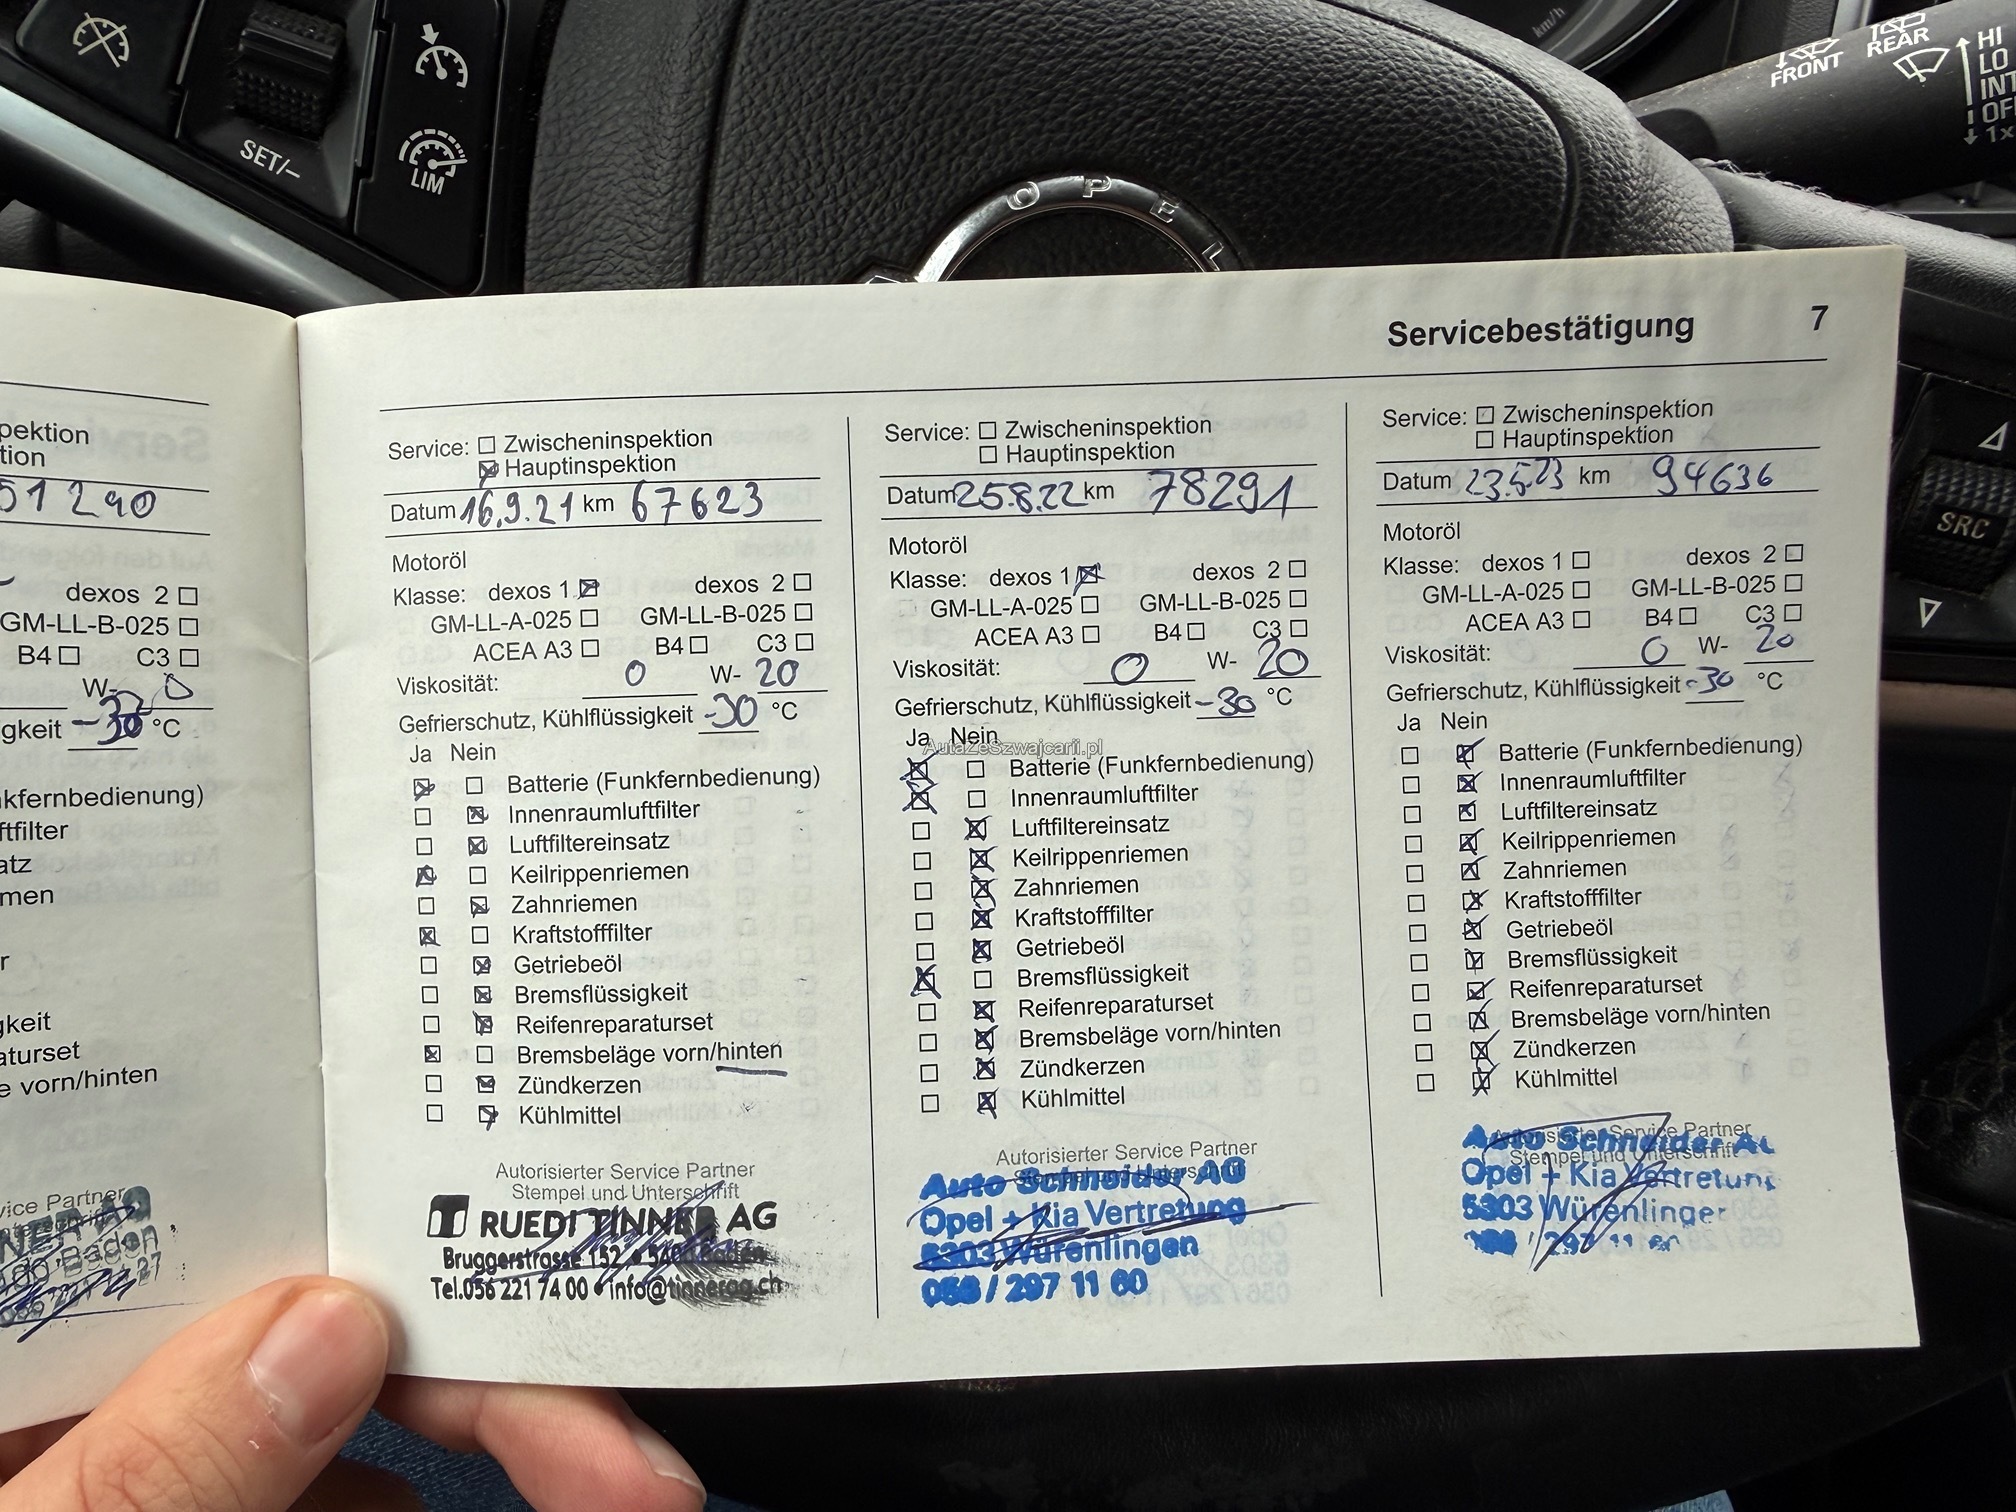 SET/–
LIM
OPEL
km/h
FRONT
REAR
HI
LO
INT
1x
SRC
Servicebestätigung 7
pektion
tion
51290
dexos 2 ☐
GM-LL-B-025 ☐
B4 ☐ C3 ☐
W-
gkeit -30 °C
nkfernbedienung)
ftfilter
atz
men
r
gkeit
aturset
e vorn/hinten
vice Partner
Baden
Service: ☐ Zwischeninspektion
☒ Hauptinspektion
Datum 16.9.21 km 67623
Motoröl
Klasse: dexos 1 ☒ dexos 2 ☐
GM-LL-A-025 ☐ GM-LL-B-025 ☐
ACEA A3 ☐ B4 ☐ C3 ☐
Viskosität: 0 W- 20
Gefrierschutz, Kühlflüssigkeit -30 °C
Ja Nein
☒ ☐ Batterie (Funkfernbedienung)
☐ ☒ Innenraumluftfilter
☐ ☒ Luftfiltereinsatz
☒ ☐ Keilrippenriemen
☐ ☒ Zahnriemen
☒ ☐ Kraftstofffilter
☐ ☒ Getriebeöl
☐ ☒ Bremsflüssigkeit
☐ ☒ Reifenreparaturset
☒ ☐ Bremsbeläge vorn/hinten
☐ ☒ Zündkerzen
☐ ☒ Kühlmittel
Autorisierter Service Partner
Stempel und Unterschrift
RUEDI TINNER AG
Bruggerstrasse 152 • Baden
Tel.056 221 74 00 • info@tinnerag.ch
Service: ☐ Zwischeninspektion
☐ Hauptinspektion
Datum 25.8.22 km 78291
Motoröl
Klasse: dexos 1 ☒ dexos 2 ☐
GM-LL-A-025 ☐ GM-LL-B-025 ☐
ACEA A3 ☐ B4 ☐ C3 ☐
Viskosität: 0 W- 20
Gefrierschutz, Kühlflüssigkeit -30 °C
Ja Nein
AutaZeSzwajcarii.pl
☒ ☐ Batterie (Funkfernbedienung)
☒ ☐ Innenraumluftfilter
☐ ☒ Luftfiltereinsatz
☐ ☒ Keilrippenriemen
☐ ☒ Zahnriemen
☐ ☒ Kraftstofffilter
☐ ☒ Getriebeöl
☒ ☐ Bremsflüssigkeit
☐ ☒ Reifenreparaturset
☐ ☒ Bremsbeläge vorn/hinten
☐ ☒ Zündkerzen
☐ ☒ Kühlmittel
Autorisierter Service Partner
Stempel und Unterschrift
Auto Schneider AG
Opel + Kia Vertretung
5303 Würenlingen
056 / 297 11 60
Service: ☐ Zwischeninspektion
☐ Hauptinspektion
Datum 23.5.23 km 94636
Motoröl
Klasse: dexos 1 ☐ dexos 2 ☐
GM-LL-A-025 ☐ GM-LL-B-025 ☐
ACEA A3 ☐ B4 ☐ C3 ☐
Viskosität: 0 W- 20
Gefrierschutz, Kühlflüssigkeit -30 °C
Ja Nein
☐ ☒ Batterie (Funkfernbedienung)
☐ ☒ Innenraumluftfilter
☐ ☒ Luftfiltereinsatz
☐ ☒ Keilrippenriemen
☐ ☒ Zahnriemen
☐ ☒ Kraftstofffilter
☐ ☒ Getriebeöl
☐ ☒ Bremsflüssigkeit
☐ ☒ Reifenreparaturset
☐ ☒ Bremsbeläge vorn/hinten
☐ ☒ Zündkerzen
☐ ☒ Kühlmittel
Autorisierter Service Partner
Stempel und Unterschrift
Auto Schneider
Opel + Kia Vertretung
5303 Würenlingen
297 11 60